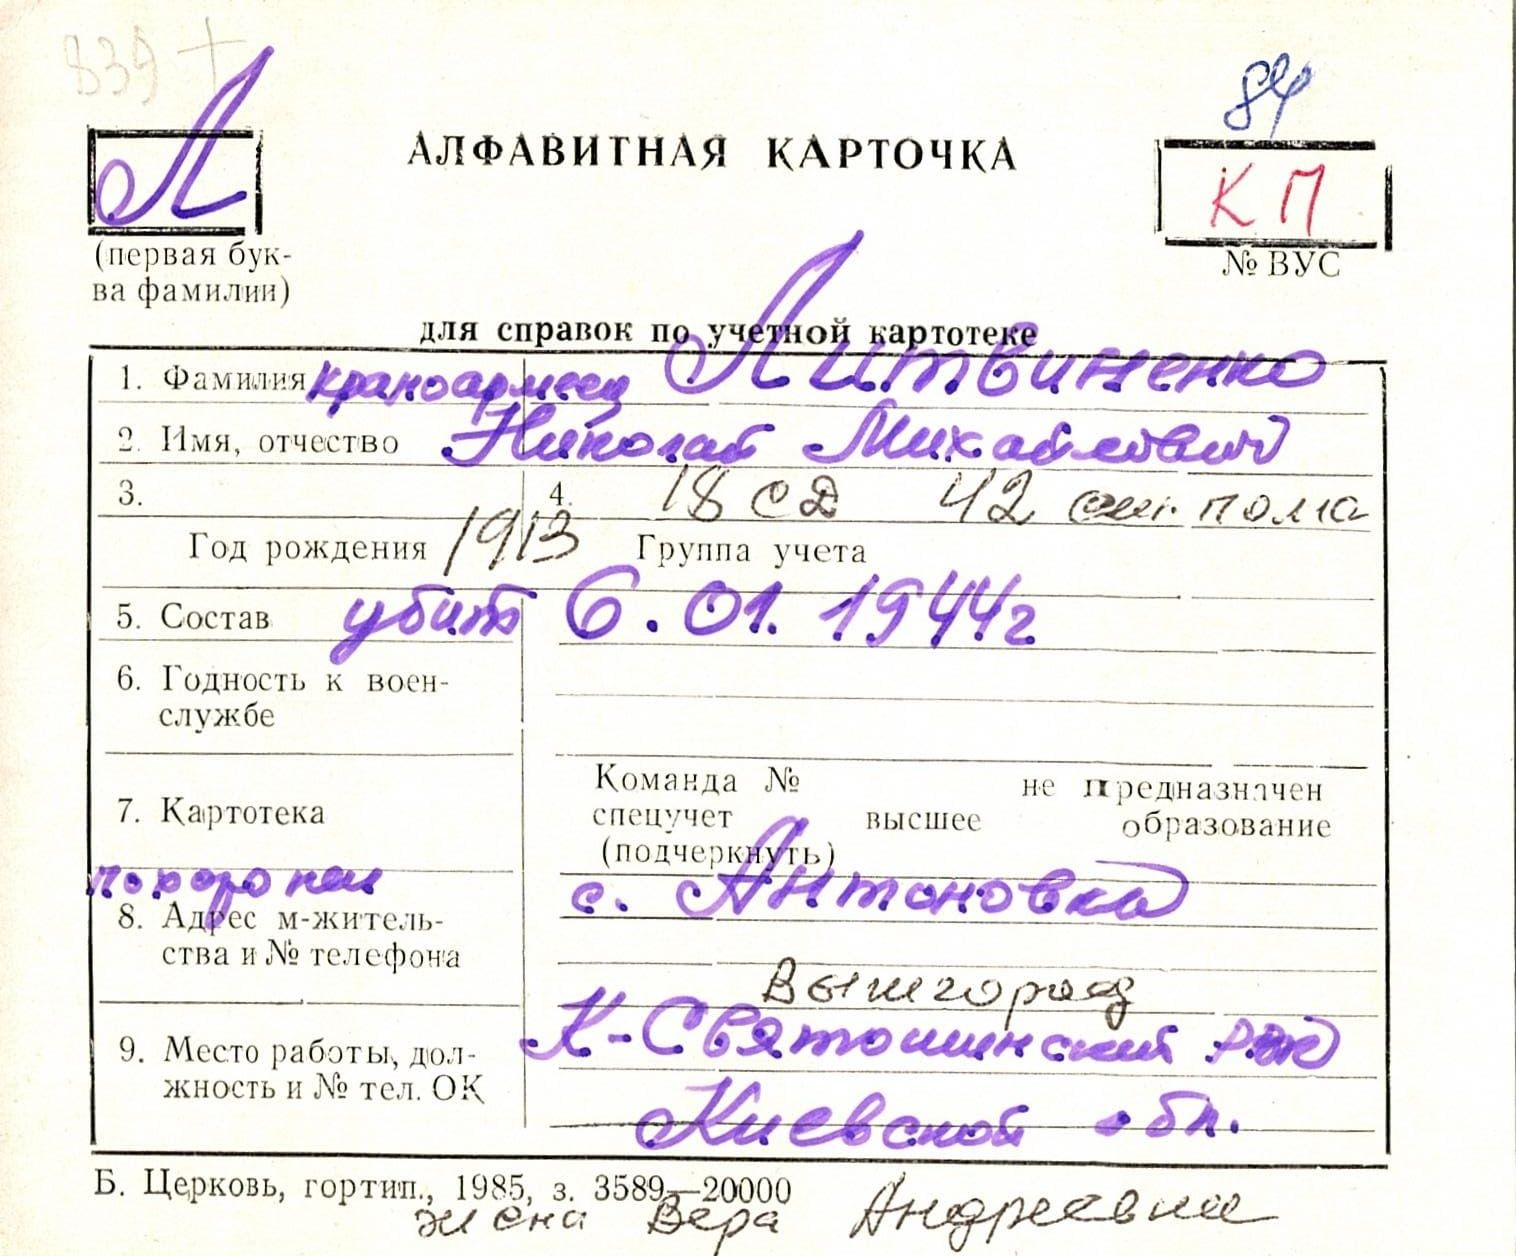 839 +
84
Л
АЛФАВИТНАЯ КАРТОЧКА
КП
(первая бук-
ва фамилии)
№ ВУС
для справок по учетной картотеке
1. Фамилия краноармеец Литвиненко
2. Имя, отчество Николай Михайлович
3. 4. 18 сд 42
Год рождения 1913 Группа учета
5. Состав убит 6.01.1944г
6. Годность к воен-
службе
Команда № не предназначен
7. Картотека
спецучет высшее образование
(подчеркнуть)
похоронен с. Антоновка
8. Адрес м-житель-
ства и № телефона
Вышгород
К-Святошинский
9. Место работы, дол-
жность и № тел. ОК
Киевской обл.
Б. Церковь, гортип., 1985, з. 3589—20000
жена Вера Андреевна